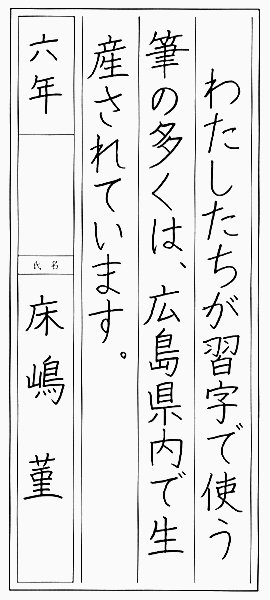 わたしたちが習字で使う
筆の多くは、広島県内で生
産されています。
六年
氏名
床嶋 菫